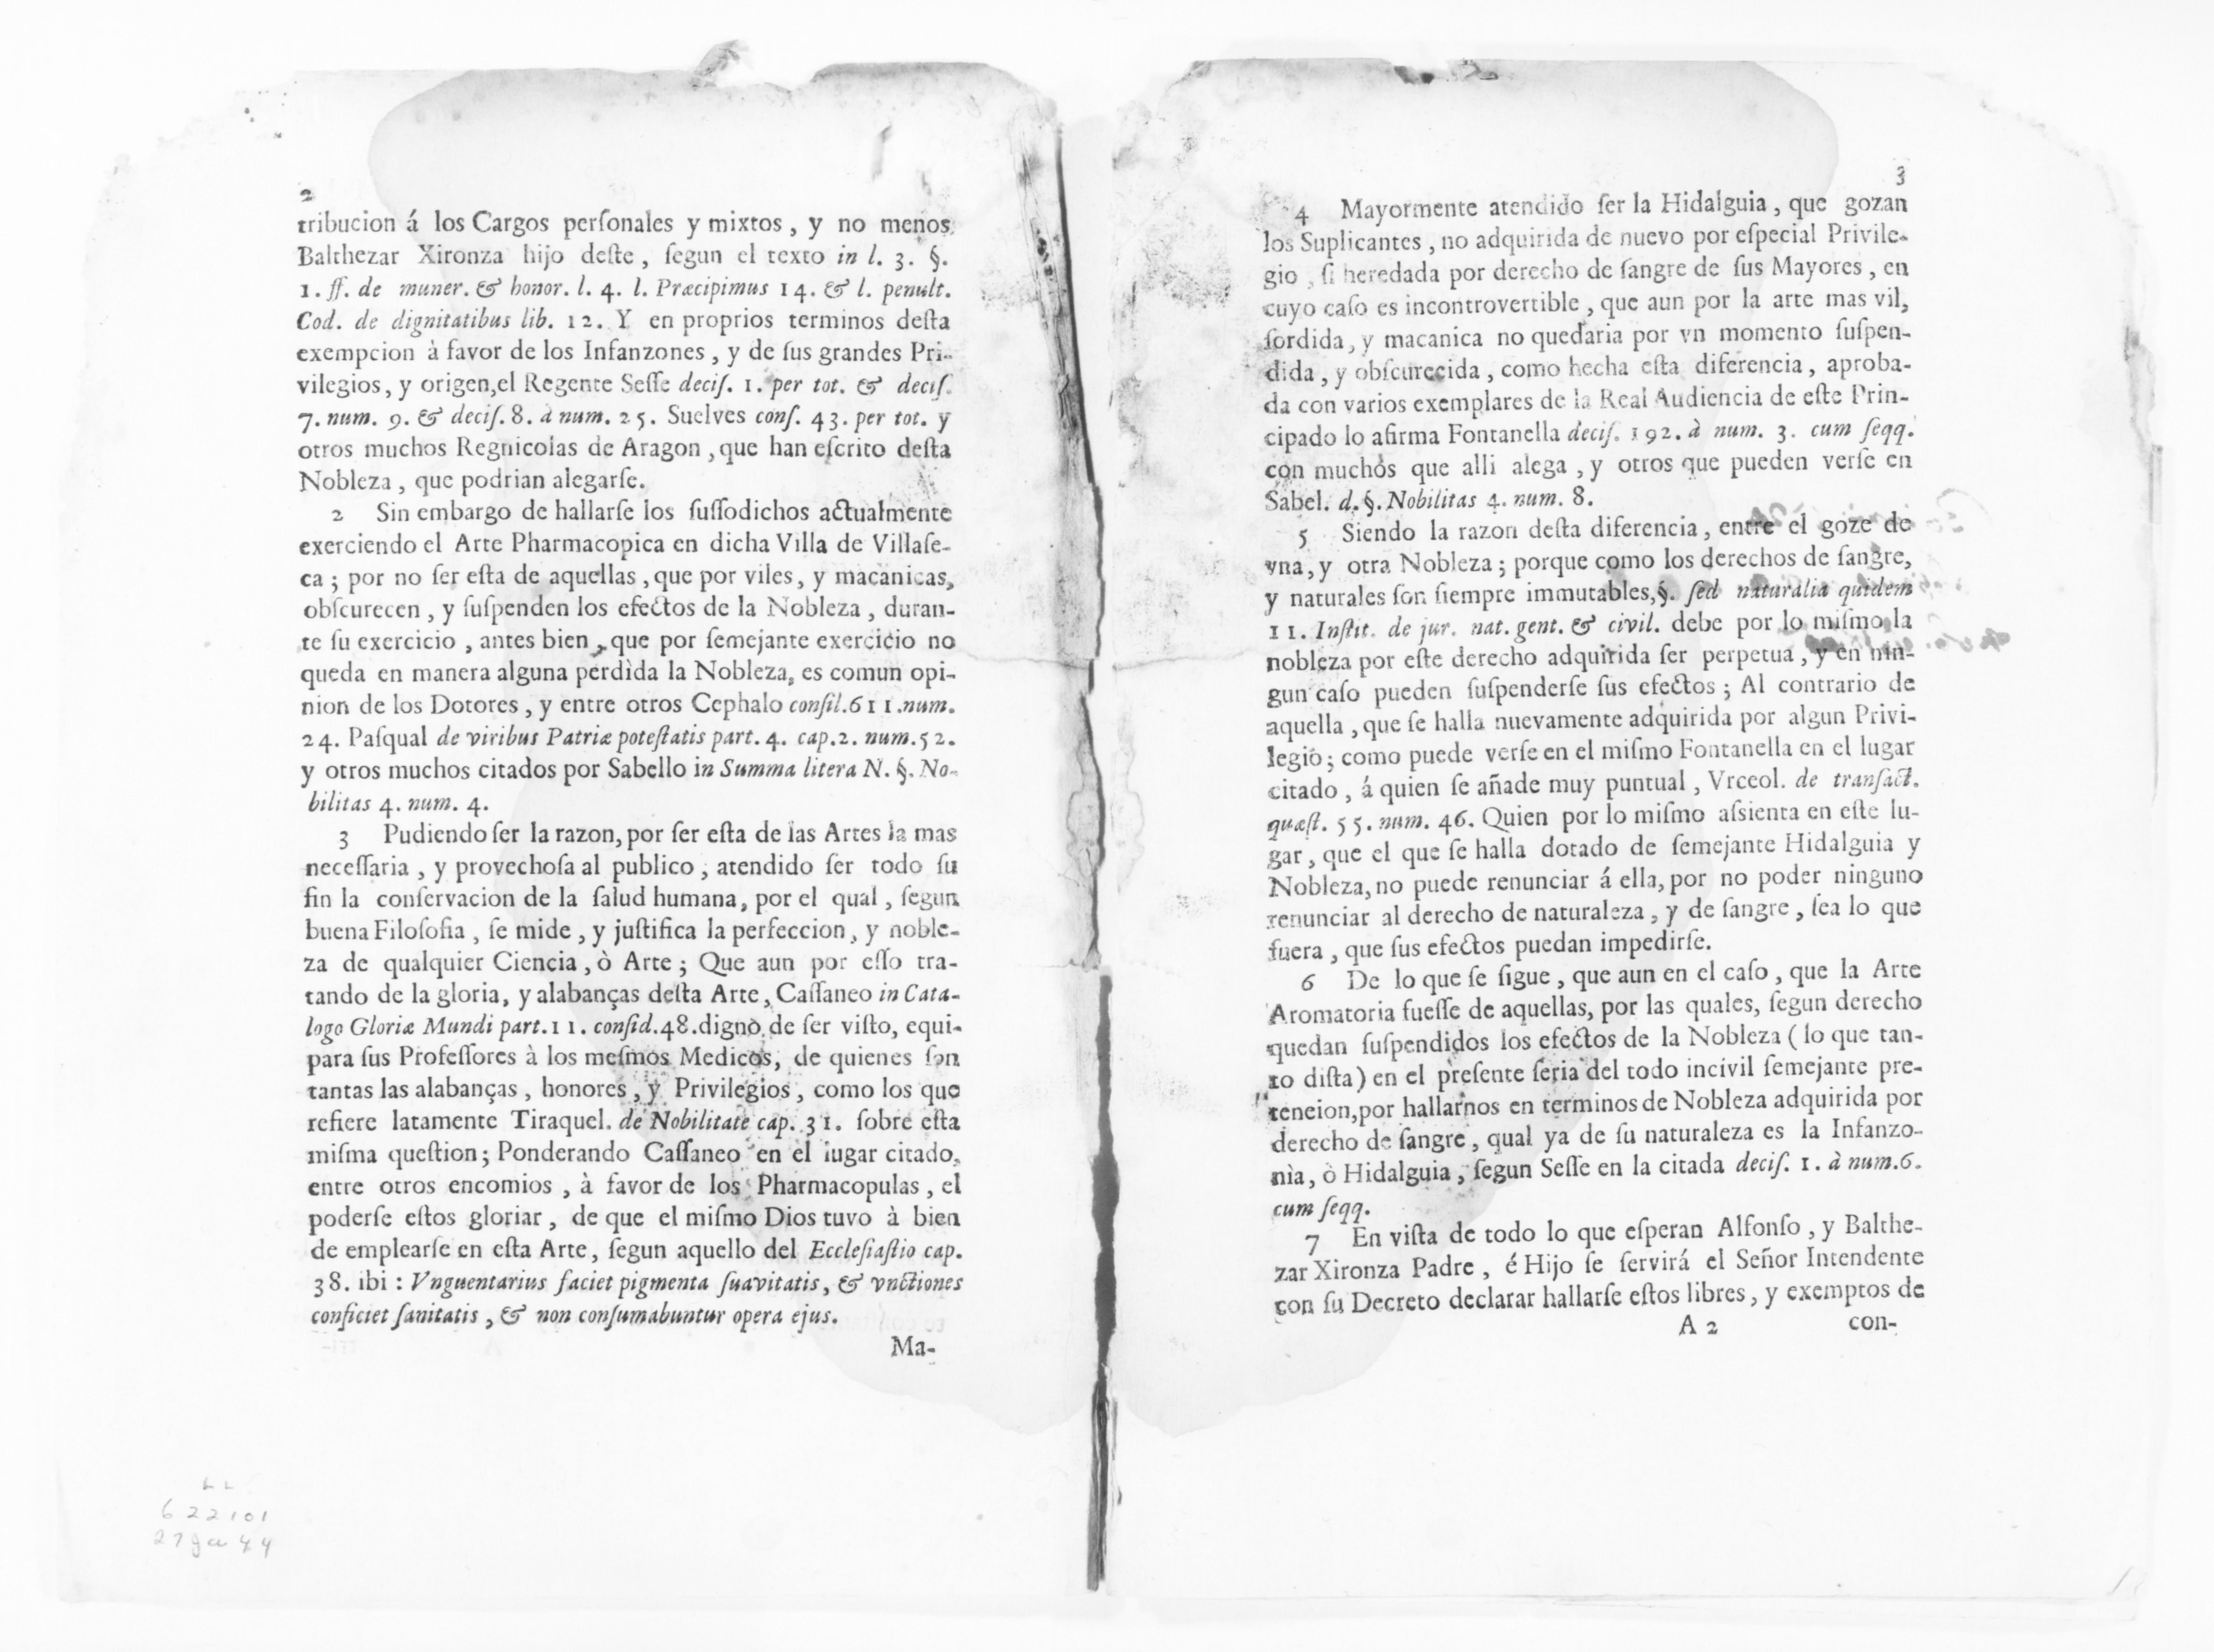 2
tribucion á los Cargos perſonales y mixtos, y no menos
Balthezar Xironza hijo deſte, ſegun el texto in l. 3. §.
1. ff. de muner. & honor. l. 4. l. Præcipimus 14. & l. penult.
Cod. de dignitatibus lib. 12. Y en proprios terminos deſta
exempcion à favor de los Infanzones, y de ſus grandes Pri-
vilegios, y origen, el Regente Seſſe deciſ. 1. per tot. & deciſ.
7. num. 9. & deciſ. 8. à num. 25. Suelves conſ. 43. per tot. y
otros muchos Regnicolas de Aragon, que han eſcrito deſta
Nobleza, que podrian alegarſe.
2 Sin embargo de hallarſe los ſuſſodichos actualmente
exerciendo el Arte Pharmacopica en dicha Villa de Villaſe-
ca; por no ſer eſta de aquellas, que por viles, y macanicas,
obſcurecen, y ſuſpenden los efectos de la Nobleza, duran-
te ſu exercicio, antes bien, que por ſemejante exercicio no
queda en manera alguna perdìda la Nobleza, es comun opi-
nion de los Dotores, y entre otros Cephalo conſil. 611. num.
24. Paſqual de viribus Patriæ poteſtatis part. 4. cap. 2. num. 52.
y otros muchos citados por Sabello in Summa litera N. §. No-
bilitas 4. num. 4.
3 Pudiendo ſer la razon, por ſer eſta de las Artes la mas
neceſſaria, y provechoſa al publico, atendido ſer todo ſu
fin la conſervacion de la ſalud humana, por el qual, ſegun
buena Filoſofia, ſe mide, y juſtifica la perfeccion, y noble-
za de qualquier Ciencia, ò Arte; Que aun por eſſo tra-
tando de la gloria, y alabanças deſta Arte, Caſſaneo in Cata-
logo Gloriæ Mundi part. 11. conſid. 48. digno de ſer viſto, equi-
para ſus Profeſſores à los meſmos Medicos, de quienes ſon
tantas las alabanças, honores, y Privilegios, como los que
refiere latamente Tiraquel. de Nobilitate cap. 31. ſobre eſta
miſma queſtion; Ponderando Caſſaneo en el lugar citado,
entre otros encomios, à favor de los Pharmacopulas, el
poderſe eſtos gloriar, de que el miſmo Dios tuvo à bien
de emplearſe en eſta Arte, ſegun aquello del Eccleſiaſtio cap.
38. ibi: Vnguentarius faciet pigmenta ſuavitatis, & vnctiones
conficiet ſanitatis, & non conſumabuntur opera ejus.
Ma-
LL
622101
27ja44
3
4 Mayormente atendido ſer la Hidalguia, que gozan
los Suplicantes, no adquirida de nuevo por eſpecial Privile-
gio, ſi heredada por derecho de ſangre de ſus Mayores, en
cuyo caſo es incontrovertible, que aun por la arte mas vil,
ſordida, y macanica no quedaria por vn momento ſuſpen-
dida, y obſcurecida, como hecha eſta diferencia, aproba-
da con varios exemplares de la Real Audiencia de eſte Prin-
cipado lo afirma Fontanella deciſ. 192. à num. 3. cum ſeqq.
con muchos que alli alega, y otros que pueden verſe en
Sabel. d. §. Nobilitas 4. num. 8.
5 Siendo la razon deſta diferencia, entre el goze de
vna, y otra Nobleza; porque como los derechos de ſangre,
y naturales ſon ſiempre immutables, §. ſed naturalia quidem
11. Inſtit. de jur. nat. gent. & civil. debe por lo miſmo la
nobleza por eſte derecho adquirida ſer perpetua, y en nin-
gun caſo pueden ſuſpenderſe ſus efectos; Al contrario de
aquella, que ſe halla nuevamente adquirida por algun Privi-
legio; como puede verſe en el miſmo Fontanella en el lugar
citado, á quien ſe añade muy puntual, Vrceol. de tranſact.
quæſt. 55. num. 46. Quien por lo miſmo aſsienta en eſte lu-
gar, que el que ſe halla dotado de ſemejante Hidalguia y
Nobleza, no puede renunciar á ella, por no poder ninguno
renunciar al derecho de naturaleza, y de ſangre, ſea lo que
fuera, que ſus efectos puedan impedirſe.
6 De lo que ſe ſigue, que aun en el caſo, que la Arte
Aromatoria fueſſe de aquellas, por las quales, ſegun derecho
quedan ſuſpendidos los efectos de la Nobleza (lo que tan-
to diſta) en el preſente ſeria del todo incivil ſemejante pre-
teneion, por hallarnos en terminos de Nobleza adquirida por
derecho de ſangre, qual ya de ſu naturaleza es la Infanzo-
nìa, ò Hidalguia, ſegun Seſſe en la citada deciſ. 1. à num. 6.
cum ſeqq.
7 En viſta de todo lo que eſperan Alfonſo, y Balthe-
zar Xironza Padre, é Hijo ſe ſervirá el Señor Intendente
con ſu Decreto declarar hallarſe eſtos libres, y exemptos de
A 2 con-